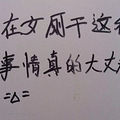 在女厕干这种
事情真的大丈
=△=